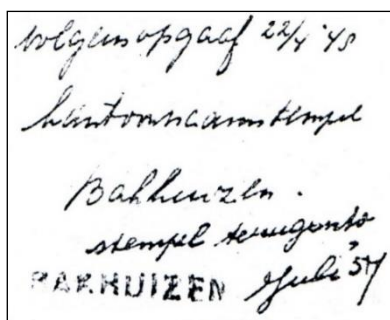 volgens opgaaf 22/4 '48
kantoornaamstempel
Bakhuizen.
stempel terugontv
BAKHUIZEN Juli '54